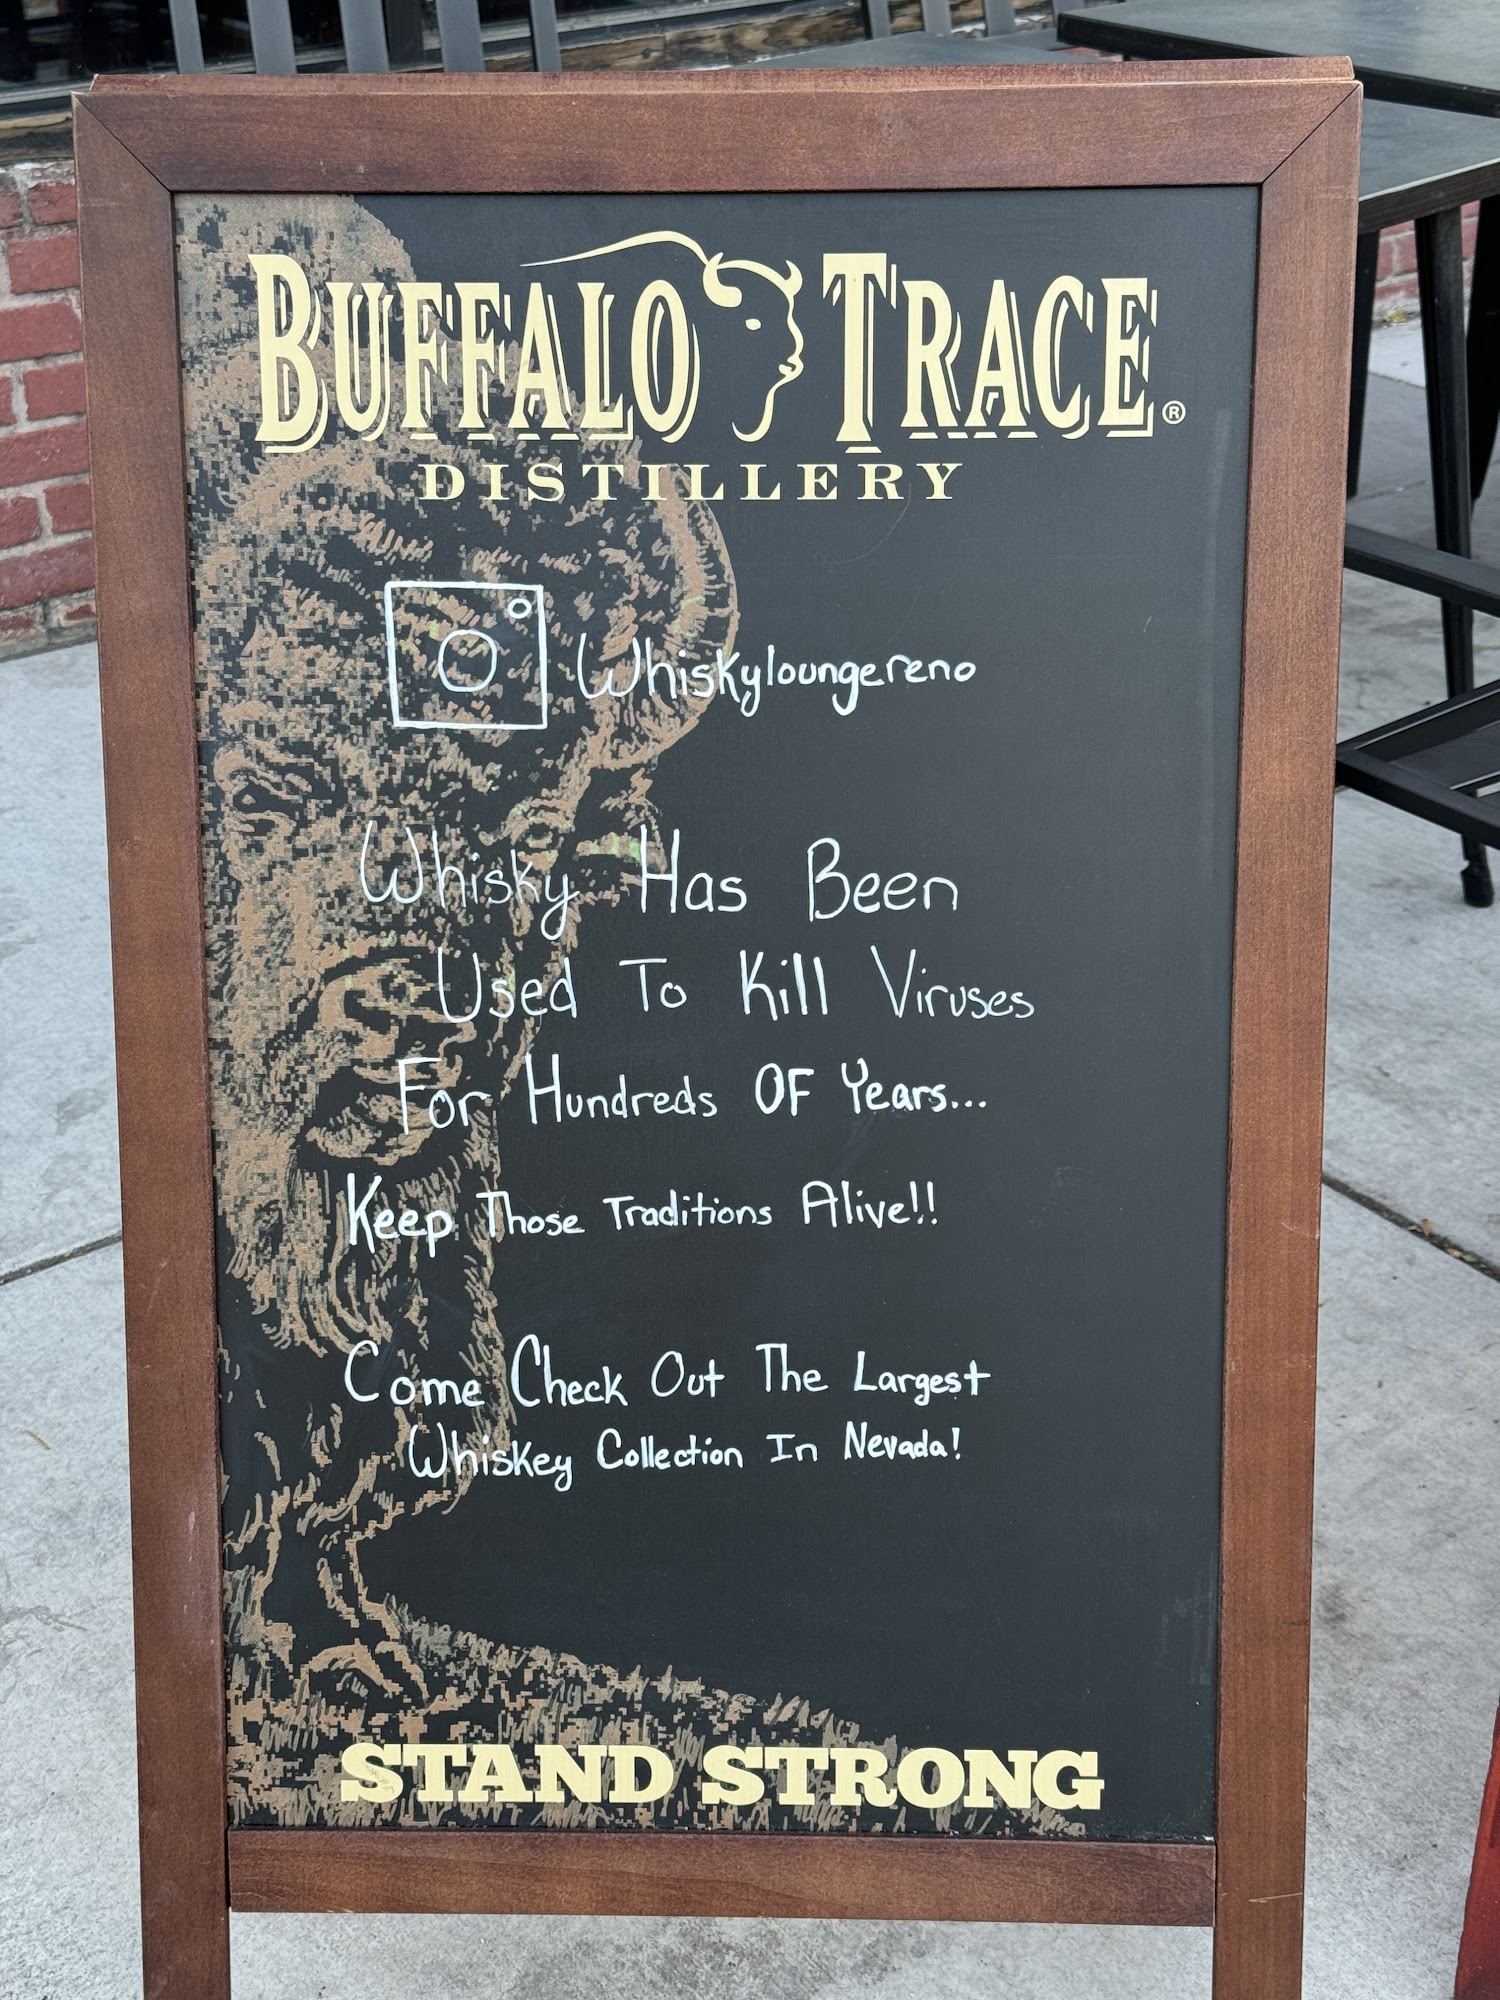 BUFFALO TRACE®
DISTILLERY
Whiskyloungereno
Whisky Has Been
Used To Kill Viruses
For Hundreds OF Years...
Keep Those Traditions Alive!!
Come Check Out The Largest
Whiskey Collection In Nevada!
STAND STRONG